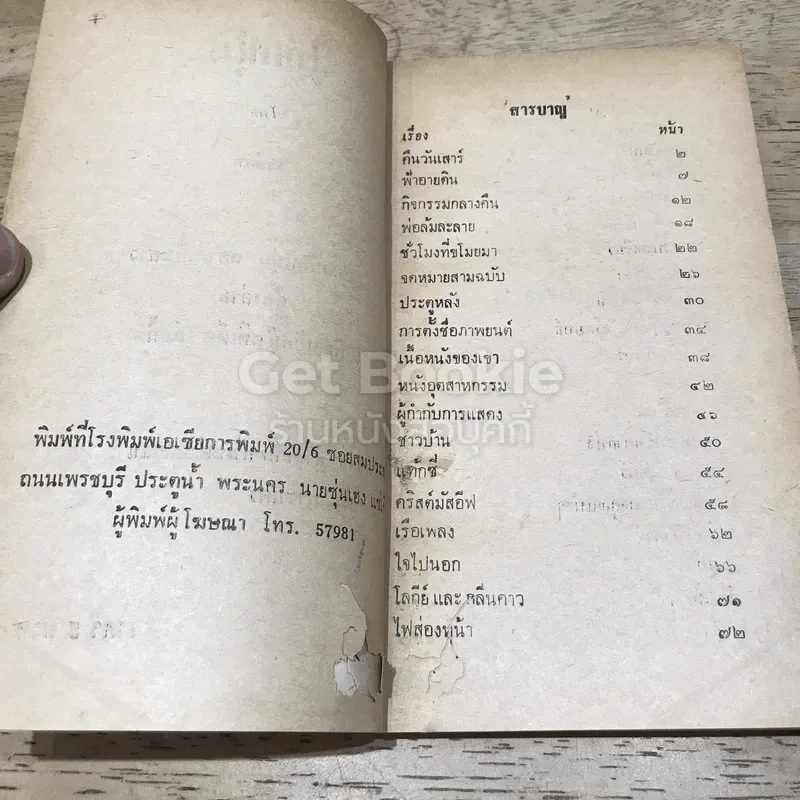 พิมพ์ที่โรงพิมพ์เอเซียการพิมพ์ 20/6 ซอยสมประ
ถนนเพรชบุรี ประตูน้ำ พระนคร นายซุ่นเฮง แซ่
ผู้พิมพ์ผู้โฆษณา โทร. 57981
'สารบาญ'
เรื่อง หน้า
คืนวันเสาร์ ๒
ฟ้าอายดิน ๗
กิจกรรมกลางคืน ๑๒
พ่อล้มละลาย ๑๘
ชั่วโมงที่ขโมยมา ๒๒
จดหมายสามฉบับ ๒๖
ประตูหลัง ๓๐
การตั้งชื่อภาพยนต์ ๓๔
เนื้อหนังของเขา ๓๘
หนังอุตสาหกรรม ๔๒
ผู้กำกับการแสดง ๔๖
ชาวบ้าน ๕๐
แท๊กซี่ ๕๔
คริสต์มัสอีฟ ๕๘
เรือเพลง ๖๒
ใจไปนอก ๖๖
โลกีย์ และ กลิ่นคาว ๗๑
ไฟส่องหน้า ๗๒
Get Bookie
ร้านหนังสือบุคกี้